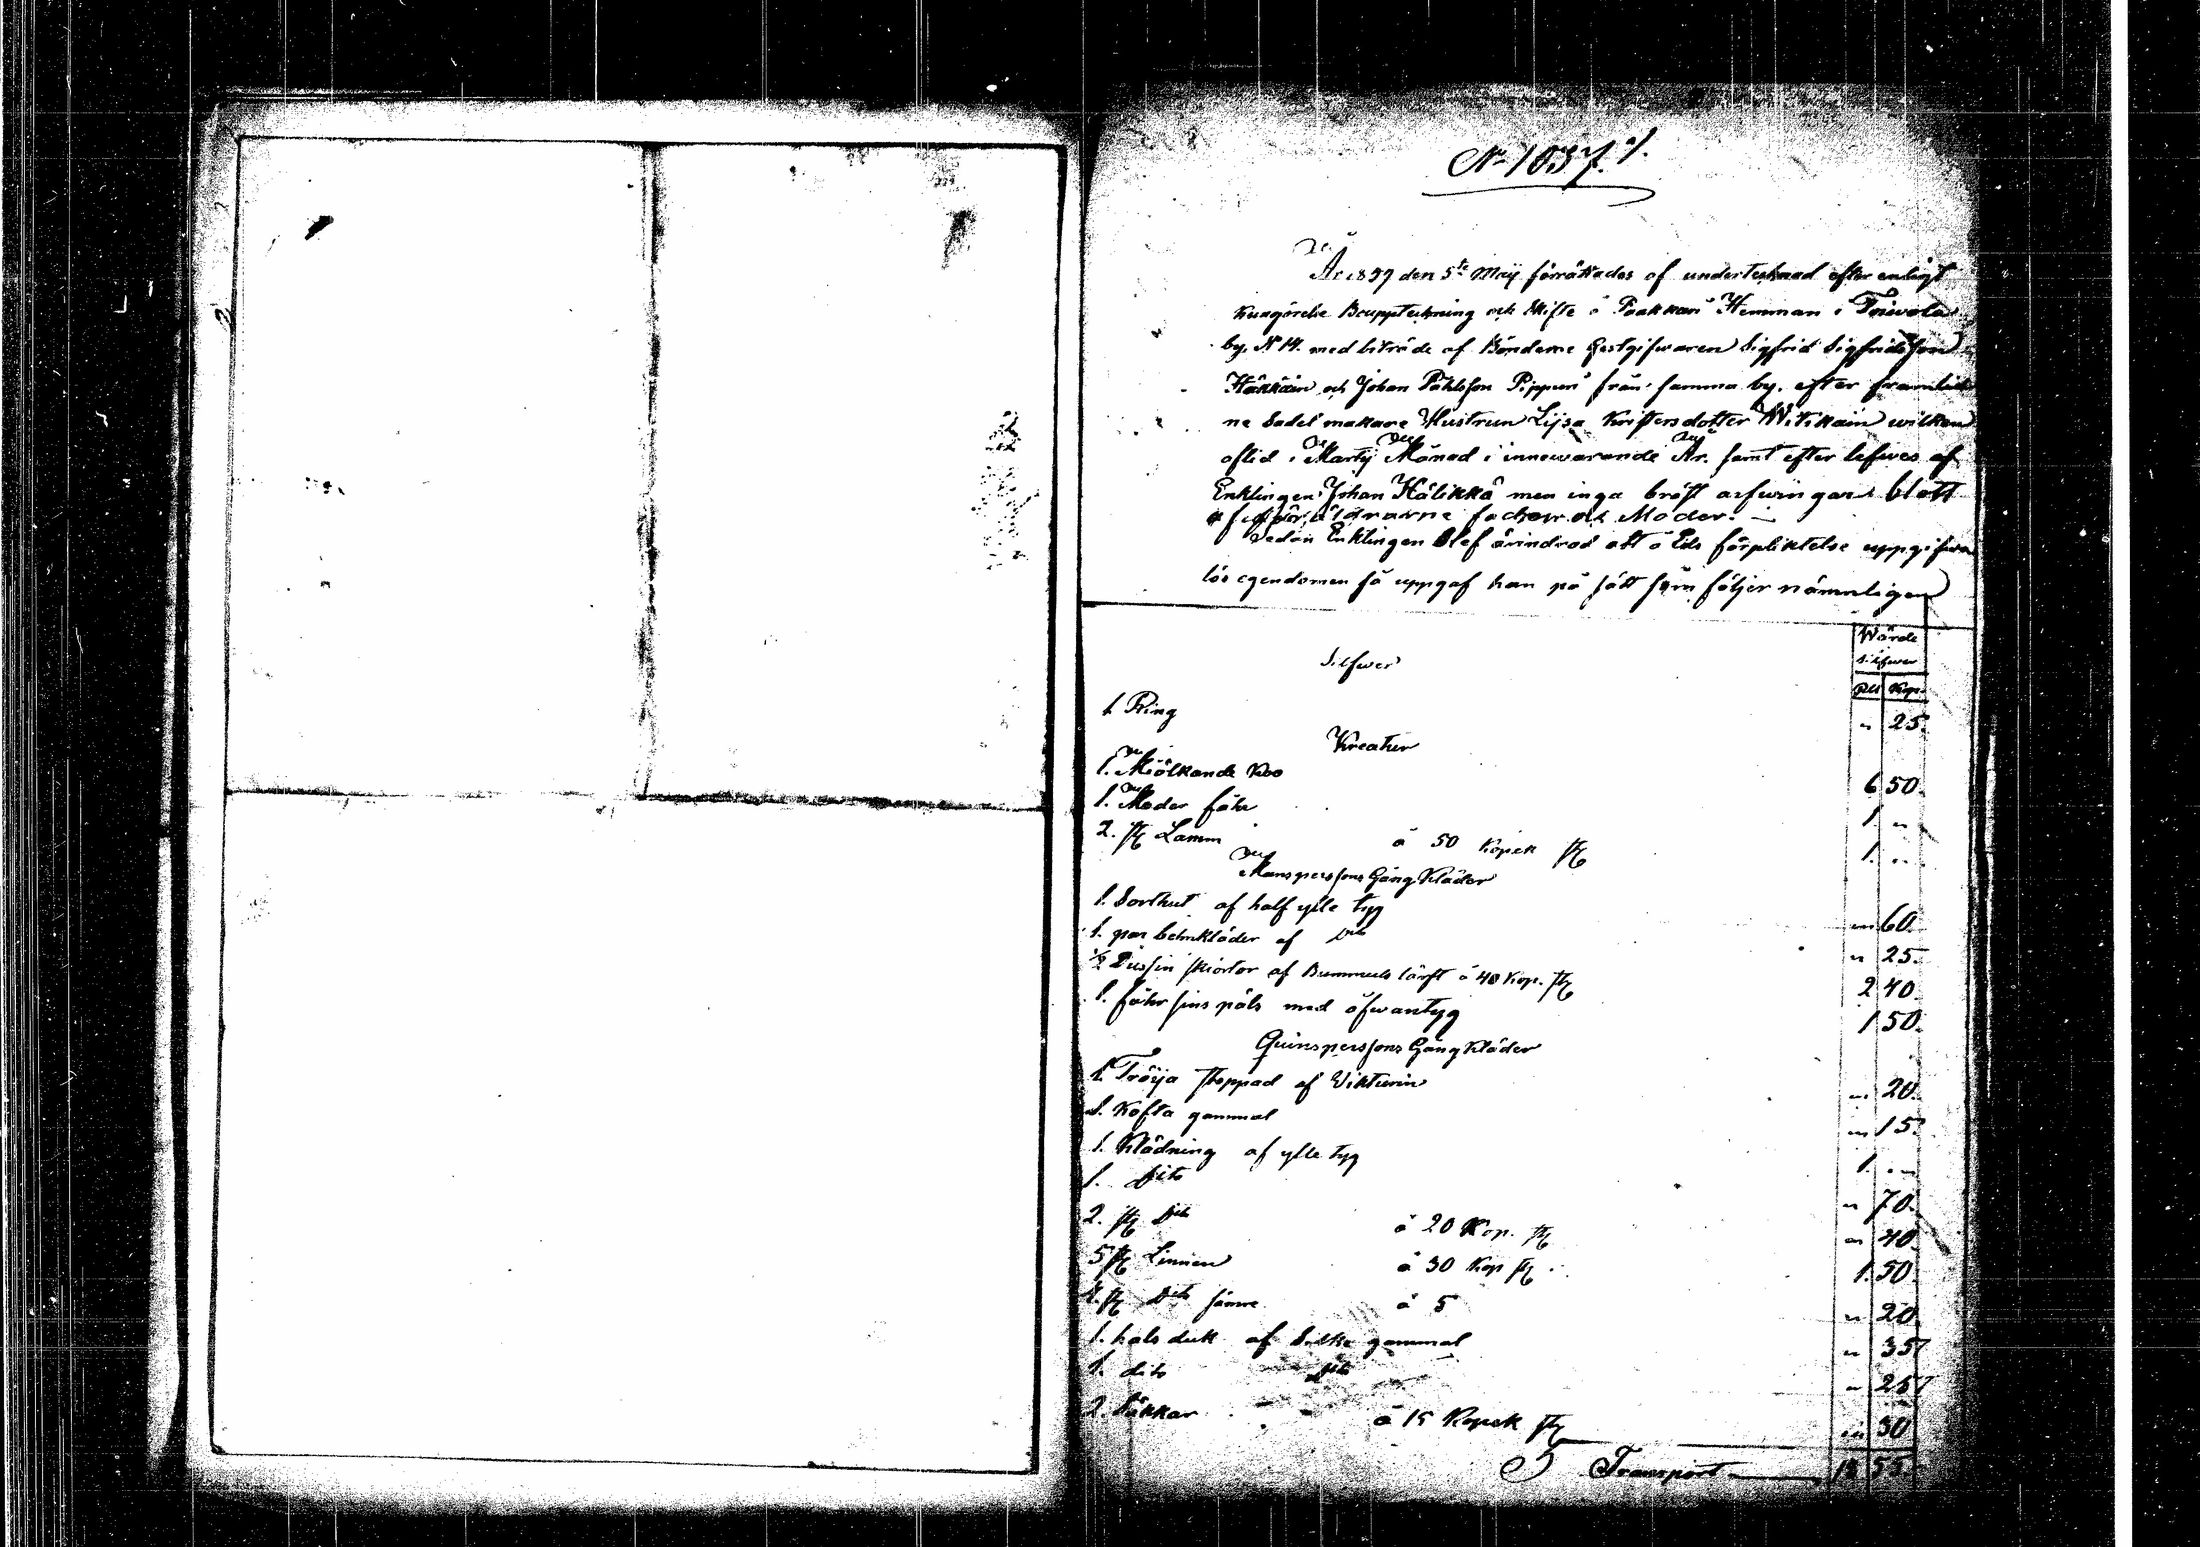 No 1037.
År 1857 den 5te Maij förrättades af undertecknad efter enligt
kungörelse Bouppteckning och skifte å Paakkari Hemman i Toivola
by. N 14. med biträde af Bönderne Gestgifwaren Sigfrid Sigfridsson
Häkkäin och Johan Påhlsson Pippuri från samma by. efter framlid
ne Sadelmakare Hustrun Lijsa Kristersdotter Witikain wilken
aflid i Martij Månad i innewarande År. samt efter lefwes af
Enklingen Johan Hälikkä men inga bröst arfwingar blott
föräldrarne fader och Moder.
Sedan Enklingen blef ärindrad att å Eds förpliktelse uppgifwa
lös egendomen så uppgaf han på sätt som följer nämnligen
Wärde
silfwer
Rub Kop.
Silfwer
1. Ring " 25.
Kreatur
1. Miölkande Koo 6 50.
1. Moder fåhr 1. "
2. st Lamm á 50 Kopek st 1. "
Manspersons Gång Kläder
1. Sorthut af half ylle tyg " 60.
1. par beinkläder af Dito " 25.
1/2 Dussin skiortor af Bummuls lärft á 40 Kop. st 2 40.
1. fåhrsins päls med öfwantyg 1 50.
Quinspersons Gång Kläder
1. Tröija stoppad af Vikturin " 20.
1. Kofta gammal " 15.
1. Klädning af ylle tyg 1. "
1. Dito " 70.
2. st Dito á 20 Kop. st " 40.
5 st Linnen á 30 Kop st 1. 50.
4. st Dito sämre á 5 " 20
1. halsduk af Silke gammal " 35
1. dito dito " 25
2. Säkkar á 15 Kopek st " 30
Transport 18 55.